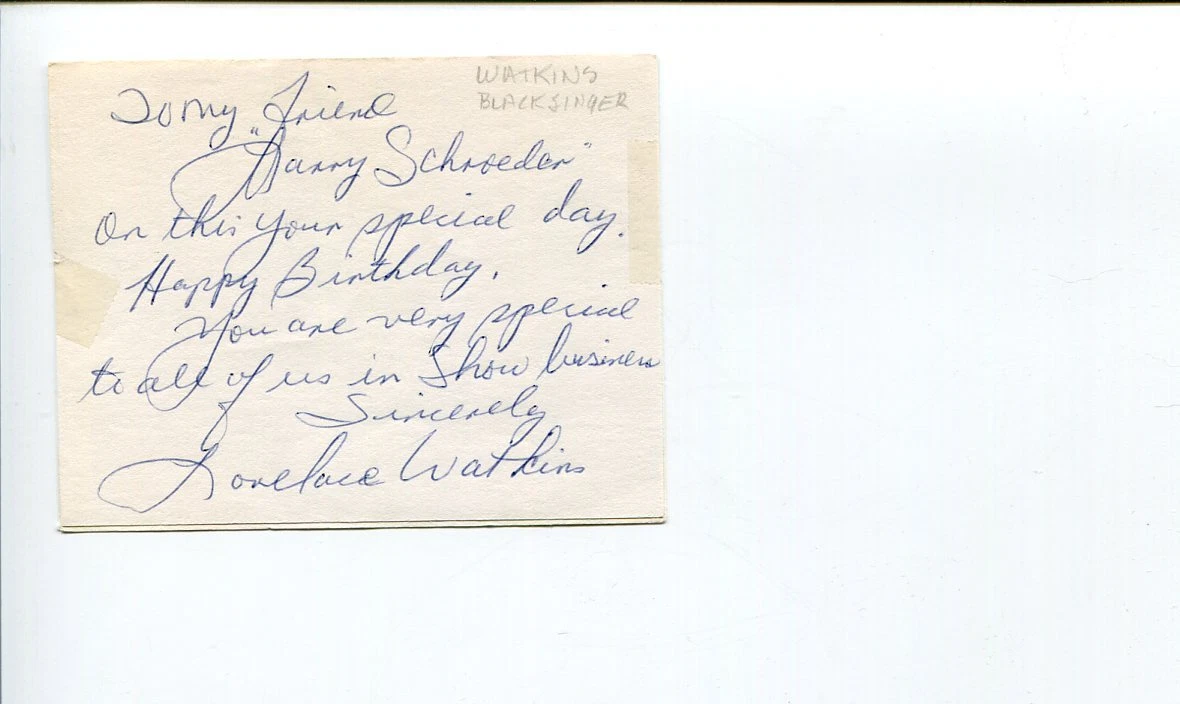 WATKINS
BLACK SINGER
To my Friend
"Harry Schroeder"
On this your special day.
Happy Birthday.
You are very special
to all of us in Show business
Sincerely
Lovelace Watkins